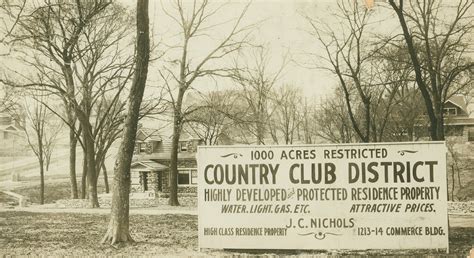 1000 ACRES RESTRICTED
COUNTRY CLUB DISTRICT
HIGHLY DEVELOPED AND PROTECTED RESIDENCE PROPERTY
WATER. LIGHT. GAS. ETC. ATTRACTIVE PRICES.
J.C. NICHOLS
HIGH CLASS RESIDENCE PROPERTY 1213-14 COMMERCE BLDG.